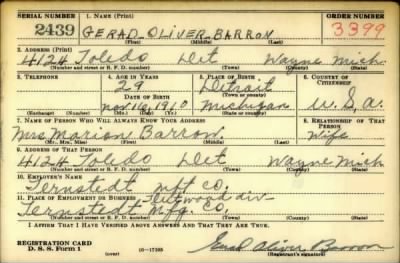 SERIAL NUMBER 1. NAME (Print) ORDER NUMBER
2439 GERAD OLIVER BARRON 3399
(First) (Middle) (Last)
2. ADDRESS (Print)
4124 Toledo Det Wayne Mich.
(Number and street or R. F. D. number) (Town) (County) (State)
3. TELEPHONE 4. AGE IN YEARS 5. PLACE OF BIRTH 6. COUNTRY OF CITIZENSHIP
29 Detroit
DATE OF BIRTH (Town or county)
Nov 16, 1910 Michigan U.S.A.
(Exchange) (Number) (Mo.) (Day) (Yr.) (State or country)
7. NAME OF PERSON WHO WILL ALWAYS KNOW YOUR ADDRESS 8. RELATIONSHIP OF THAT PERSON
Mrs Marion Barron. Wife
(Mr., Mrs., Miss) (First) (Middle) (Last)
9. ADDRESS OF THAT PERSON
4124 Toledo Det Wayne Mich
(Number and street or R. F. D. number) (Town) (County) (State)
10. EMPLOYER'S NAME
Ternstedt Mft Co.
11. PLACE OF EMPLOYMENT OR BUSINESS Fleetwood div-
Ternstedt Mfg. Co,
(Number and street or R. F. D. number) (Town) (County) (State)
I AFFIRM THAT I HAVE VERIFIED ABOVE ANSWERS AND THAT THEY ARE TRUE.
REGISTRATION CARD
D. S. S. Form 1 (over) 16—17105 Gerad Oliver Barron
(Registrant's signature)